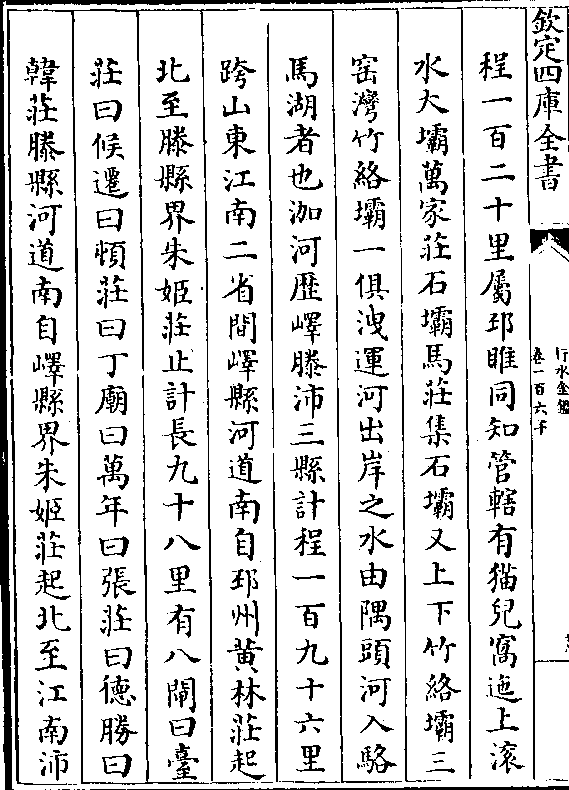 欽定四庫全書
行水金鑑
卷一百六十
程一百二十里屬邳睢同知管轄有猫兒窩迤上滚
水大壩萬家莊石壩馬莊集石壩又上下竹絡壩三
窑灣竹絡壩一俱洩運河出岸之水由隅頭河入駱
馬湖者也泇河歷嶧滕沛三縣計程一百九十六里
跨山東江南二省間嶧縣河道南自邳州黄林莊起
北至滕縣界朱姬莊止計長九十八里有八閘曰臺
莊曰候遷曰頓莊曰丁廟曰萬年曰張莊曰德勝曰
韓莊滕縣河道南自嶧縣界朱姬莊起北至江南沛